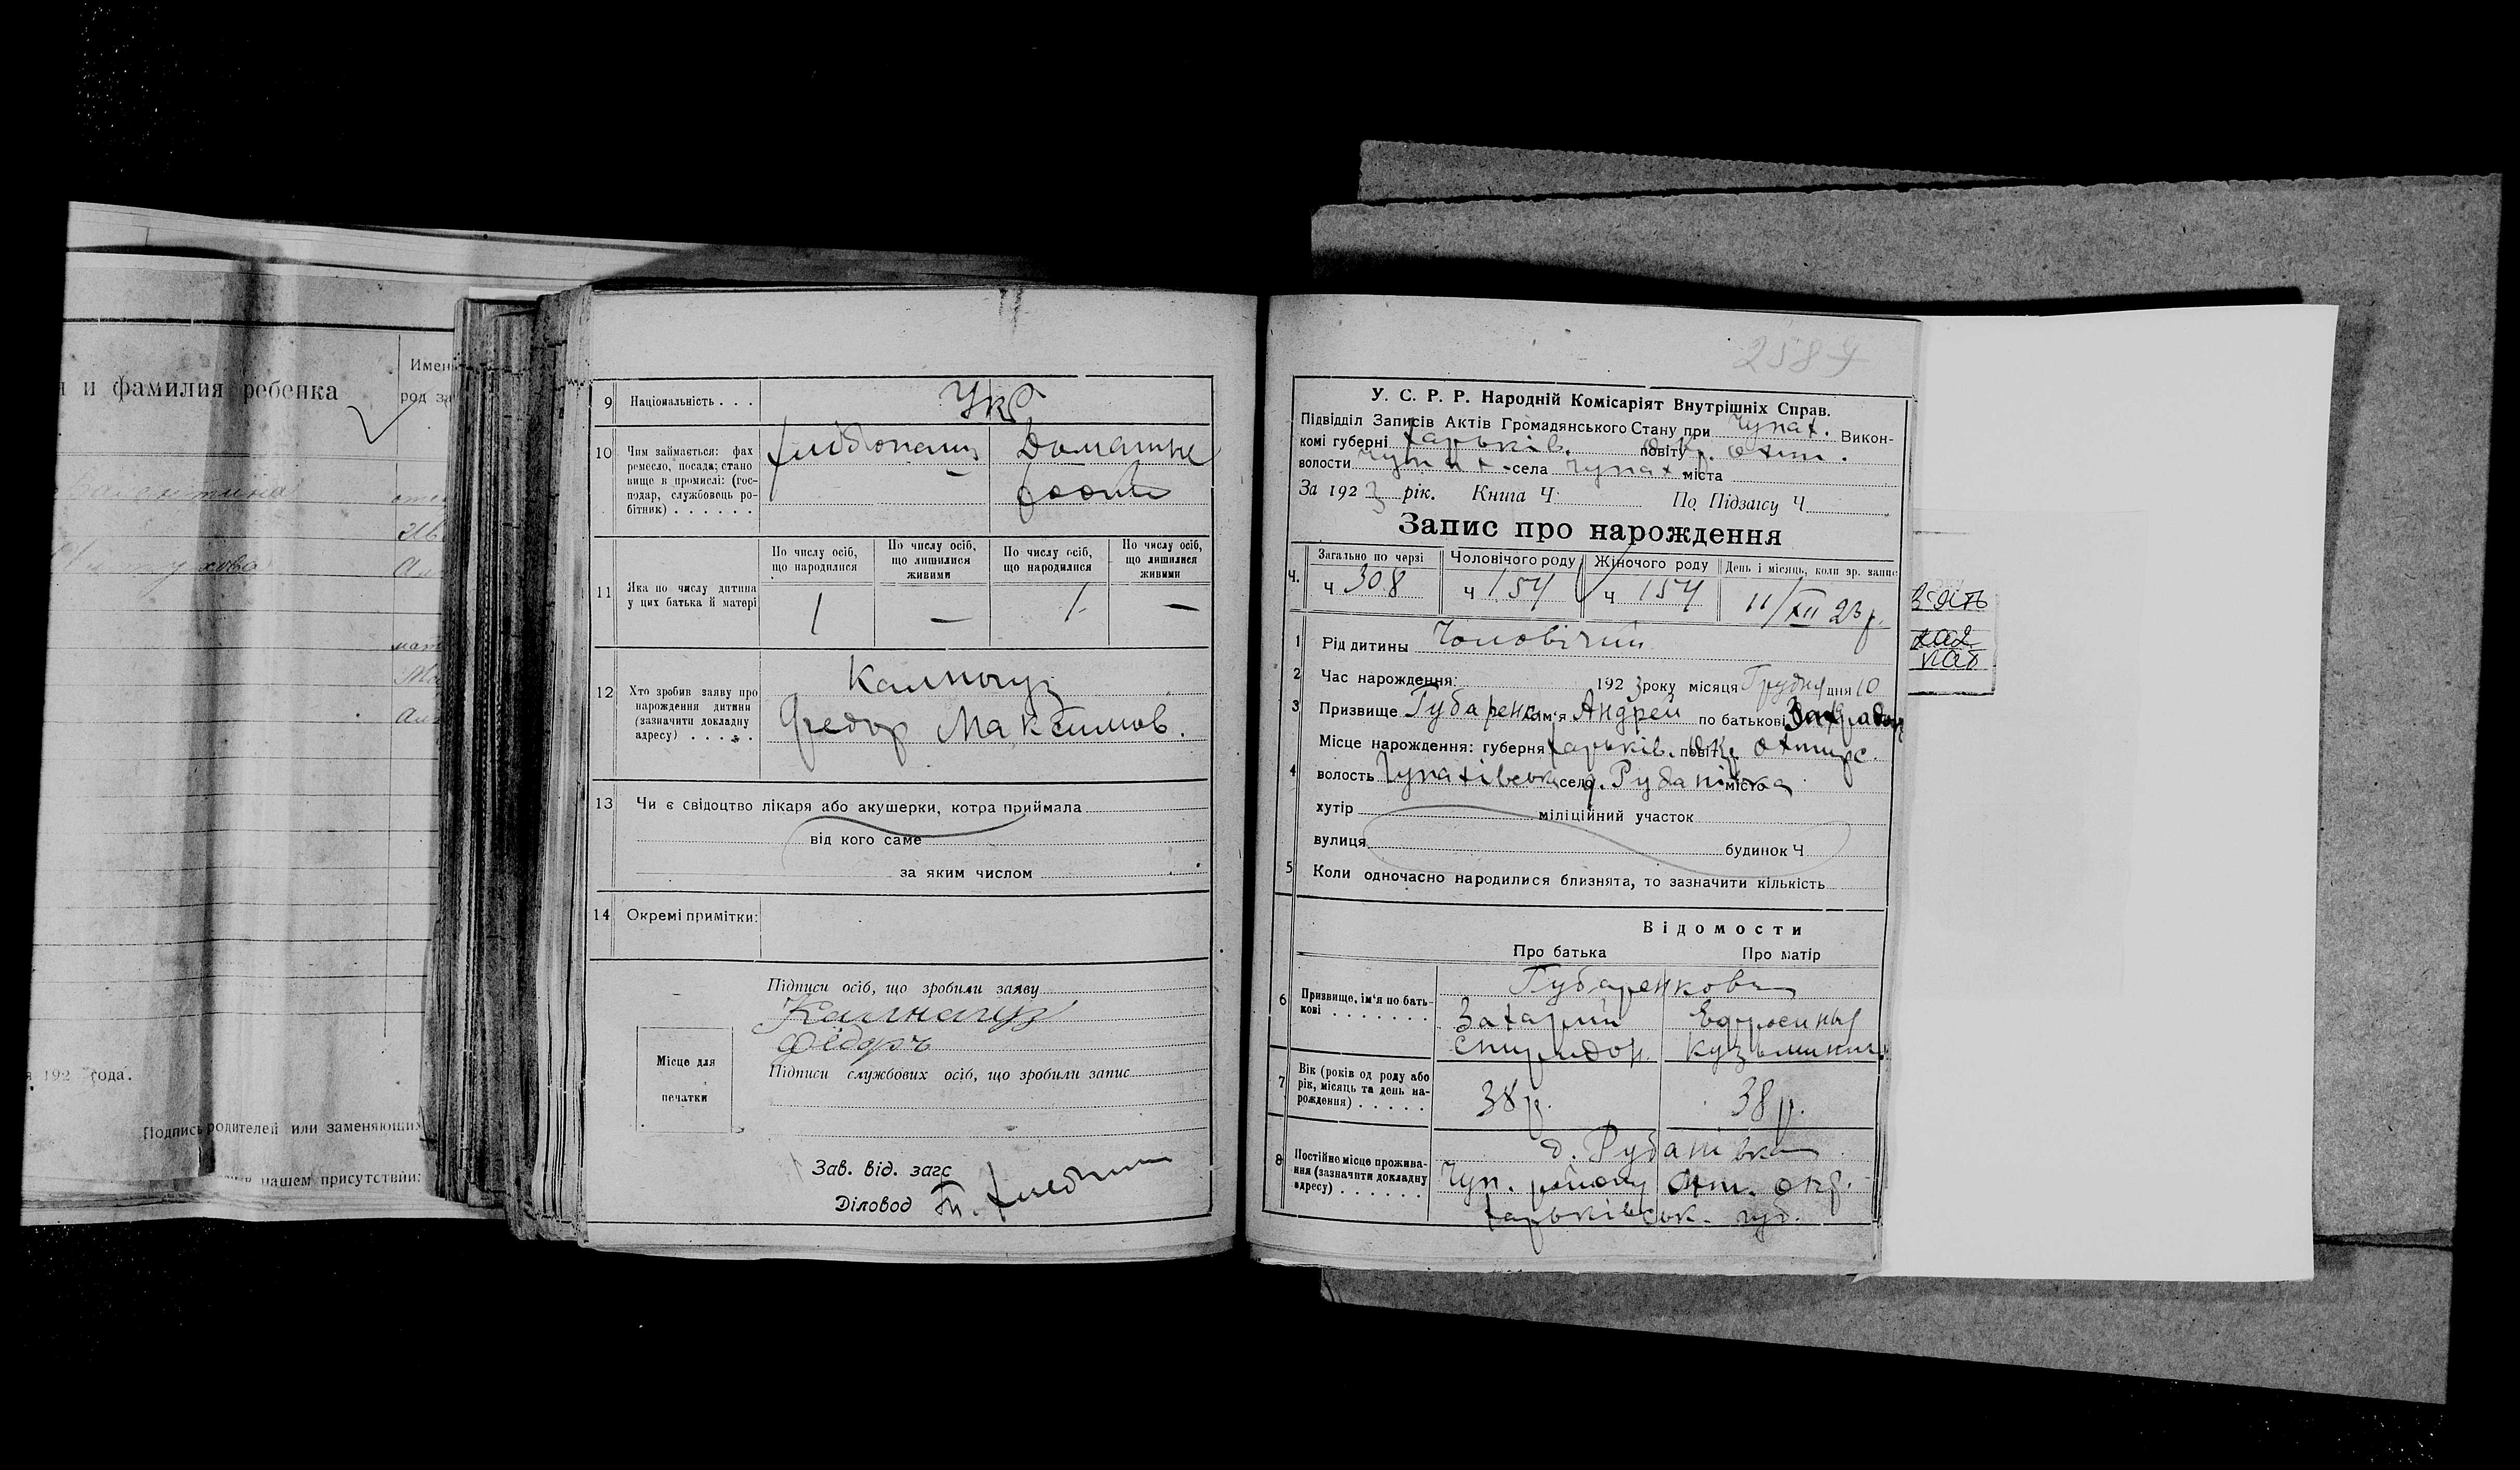 и фамилия ребенка
Имен
род за
192 года.
Подпись родителей или заменяющих
в нашем присутствии:
9 Національність . . . Укр
10 Чим займається: фах
ремесло, посада; стано
вище в промислі: (гос-
подар, службовець ро-
бітник) . . . . . .
Хлібопашц Домашне
работи
11 Яка по числу дитина
у цих батька й матері
По числу осіб,
що народилися
По числу осіб,
що лишилися
живими
По числу осіб,
що народилися
По числу осіб,
що лишилися
живими
1 — 1 —
12 Хто зробив заяву про
нарождення дитини
(зазначити докладну
адресу) . . . . .
Калногуз
Федор Максимов.
13 Чи є свідоцтво лікаря або акушерки, котра приймала
від кого саме
за яким числом
14 Окремі примітки:
Підписи осіб, що зробили заяву
Калногуз
Фёдоръ
Підписи службових осіб, що зробили запис
Місце для
печатки
Зав. від. загс
Діловод
2584
У. С. Р. Р. Народній Комісаріят Внутрішніх Справ.
Підвідділ Записів Актів Громадянського Стану при Чупах. Викон-
комі губерні Харьків. повіту Окр. Охтир.
волости Чупах. села Чупах. міста
За 1923 рік. Книга Ч. По Підзагсу Ч
Запис про нарождення
Ч. Загально по черзі Чоловічого роду Жіночого роду День і місяць, коли зр. запис
Ч 308 Ч 154 Ч 154 11/XII 23 р.
1 Рід дитини Чоловічий
2 Час нарождення: 1923 року місяця Грудня дня 10
3 Призвище Губаренко ім'я Андрей по батькові
Місце нарождення: губерня Харьків. повіт Окр. Охтирс.
4 волость Чупахівськ село д. Рубанівка міста
хутір міліційний участок
вулиця будинок Ч
5 Коли одночасно народилися близнята, то зазначити кількість
Відомости
Про батька Про матір
6 Призвище, ім'я по бать-
кові . . . . . . .
Губаренкови
Захарий Ефросиния
Спиридон. Кузьминич.
7 Вік (років од роду або
рік, місяць та день на-
рождення) . . . . .
38 р. 38 р.
8 Постійне місце прожива-
ння (зазначити докладну
адресу) . . . . . .
д. Рубанівка
Чуп. району Охт. окр.
Харьківськ. губ.